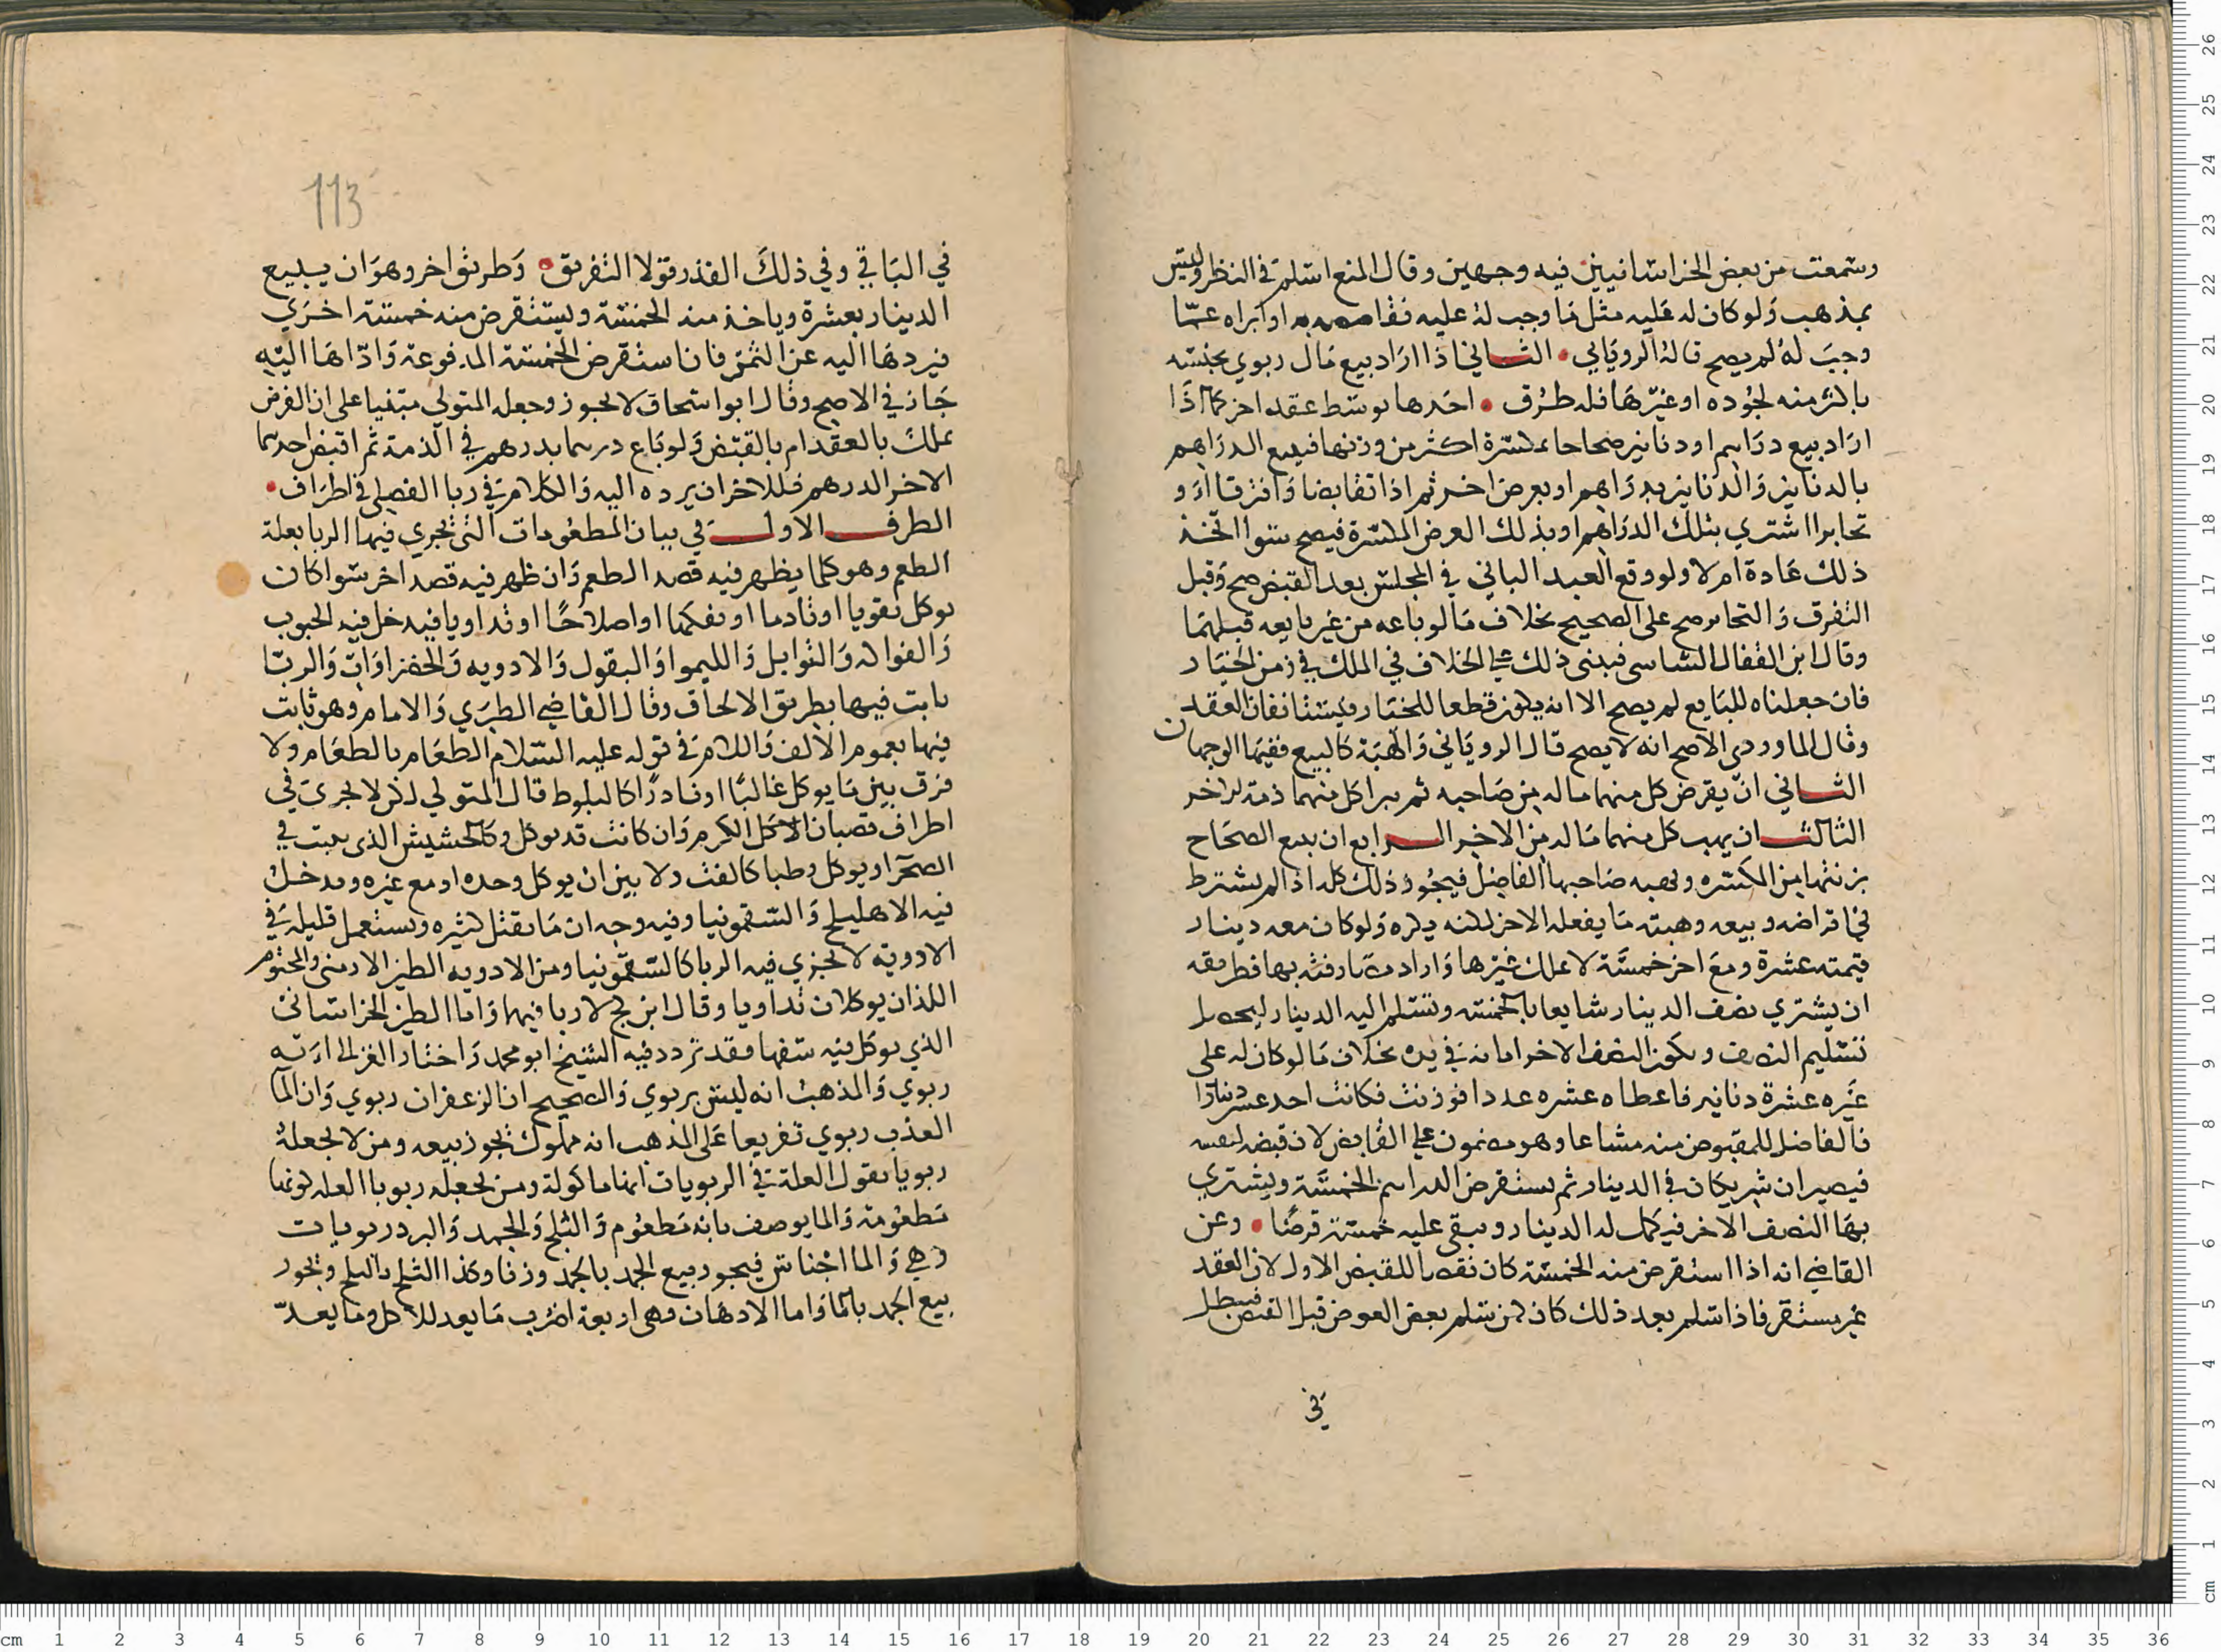 وسمعت من بعض الخراسانيين فيه وجهين وقال المنع اسلم في النظر وليس
بمذهب ولو كان له عليه مثل ما وجب له عليه فتقاصا او ابراه عما
وجب له لم يصح قاله الروياني الثاني اذا اراد بيع مال ربوي بجنسه
باكثر منه لجوده او غيرها فله طرق احدها توسط عقد اخر كما اذا
اراد بيع دراهم او دنانير صحاحا بمكسرة اكثر من وزنها فيبيع الدراهم
بالدنانير والدنانير بدراهم او بعرض اخر ثم اذا تقابضا وافترقا او
تخايرا اشتري بتلك الدراهم او بذلك العرض المكسرة فيصح سوا اتخذ
ذلك عادة ام لا ولو وقع العبد الباني في المجلس بعد القبض صح وقبل
التفرق والتخاير صح على الصحيح بخلاف ما لو باعه من غير بايعه قبلهما
وقال ابن القفال الشاسى فبنى ذلك على الخلاف في الملك في زمن الخيار
فان جعلناه للبايع لم يصح الا انه يكون قطعا للخيار ويستثانفان العقد
وقال الماوردي الاصح انه لا يصح قال الروياني والهبة كالبيع ففيها الوجهان
الثاني ان يقرض كل منهما ماله من صاحبه ثم يبرا كل منهما ذمة الاخر
الثالث ان يهب كل منهما ماله من الاخر الرابع ان يبيع الصحاح
بزنتها من المكسره ويهبه صاحبها الفاضل فيجوز ذلك كله اذا لم يشترط
في اقراضه وبيعه وهبته ما يفعله الاخر لكنه يكره ولو كان معه دينار
قيمته عشرة ومع اخر خمسة لا يملك غيرها واراد مصارفته بها فطريقه
ان يشتري نصف الدينار شايعا بالخمسه وتسلم اليه الدينار ليحصل
تسليم النصف ويكون النصف الاخر امانه في يده بخلاف ما لو كان له على
غيره عشرة دنانير فاعطاه عشره عددا فوزنت فكانت احد عشر دينارا
فالفاضل للمقبوض منه مشاعا وهو مضمون على القابض لان قبضه لنفسه
فيصيران شريكان في الدينار ثم يستقرض الدراهم الخمسة ويشتري
بها النصف الاخر فيكمل له الدينار ويبقى عليه خمسة قرضا وعن
القاضي انه اذا استقرض منه الخمسة كان نقصا للقبض الاول لان العقد
غير مستقر فاذا سلم بعد ذلك كان كمن سلم بعض العوض قبل القبض فيبطل
في
113
في الباقي وفي ذلك القدر قولا التفريق وطريق اخر وهو ان يبيع
الدينار بعشرة وياخذ منه الخمسة ويستقرض منه خمسة اخري
فيردها اليه عن الثمن فان استقرض الخمسة المدفوعة وادّاها اليه
جاز في الاصح وقال ابو اسحاق لا يجوز وجعله المتولي مبنيا على ان القرض
يملك بالعقد ام بالقبض ولو باع درهما بدرهم في الذمة ثم اقبض احدهما
الاخر الدرهم فللاخر ان يرده اليه والكلام في ربا الفضل في اطراف
الطرف الاول في بيان المطعومات التي تجري فيها الربا بعلة
الطعم وهو كلما يظهر فيه قصد الطعم وان ظهر فيه قصد اخر سوا كان
يوكل تقويا او تادما او تفكها او اصلاحا او تداويا فيدخل فيه الحبوب
والفواكه والتوابل والليموا والبقول والادويه والخضراوات والربا
ثابت فيها بطريق الالحاق وقال القاضي الطبري والامام وهو ثابت
فيها بعموم الالف واللام في قوله عليه السلام الطعام بالطعام ولا
فرق بين ما يوكل غالبا او نادرا كالبلوط قال المتولي لكن لا يجري في
اطراف قصبان الاكل الكرم وان كانت قد توكل وكالحشيش الذي ينبت في
الصحرا ويوكل رطبا كالقث ولا بين ان يوكل وحده او مع غيره ويدخل
فيه الاهليلج والسقمونيا وفيه وجه ان ما يقتل كثيره ويستعمل قليله في
الادوية لا يجري فيه الربا كالسقمونيا ومن الادويه الطين الارمني والمختوم
اللذان يوكلان تداويا وقال ابن كج لا ربا فيهما واما الطين الخراساني
الذي يوكل فيه سفها فقد تردد فيه الشيخ ابو محمد واختار الغزالي انه
ربوي والمذهب انه ليس بربوي والصحيح ان الزعفران ربوي وان الما
العذب ربوي تفريعا على المذهب انه مملوك يجوز بيعه ومن لا يجعله
ربويا يقول العلة في الربويات انها ماكولة ومن يجعله ربويا العله كونها
مطعومة والما يوصف بانه مطعوم والثلج والجمد والبرد ربويات
وهي والما اجناس فيجوز بيع الجمد بالجمد وزنا وكذا الثلج بالثلج ويجوز
بيع الجمد بالما واما الادهان وهي اربعة اضرب ما يعد للاكل وما يعد